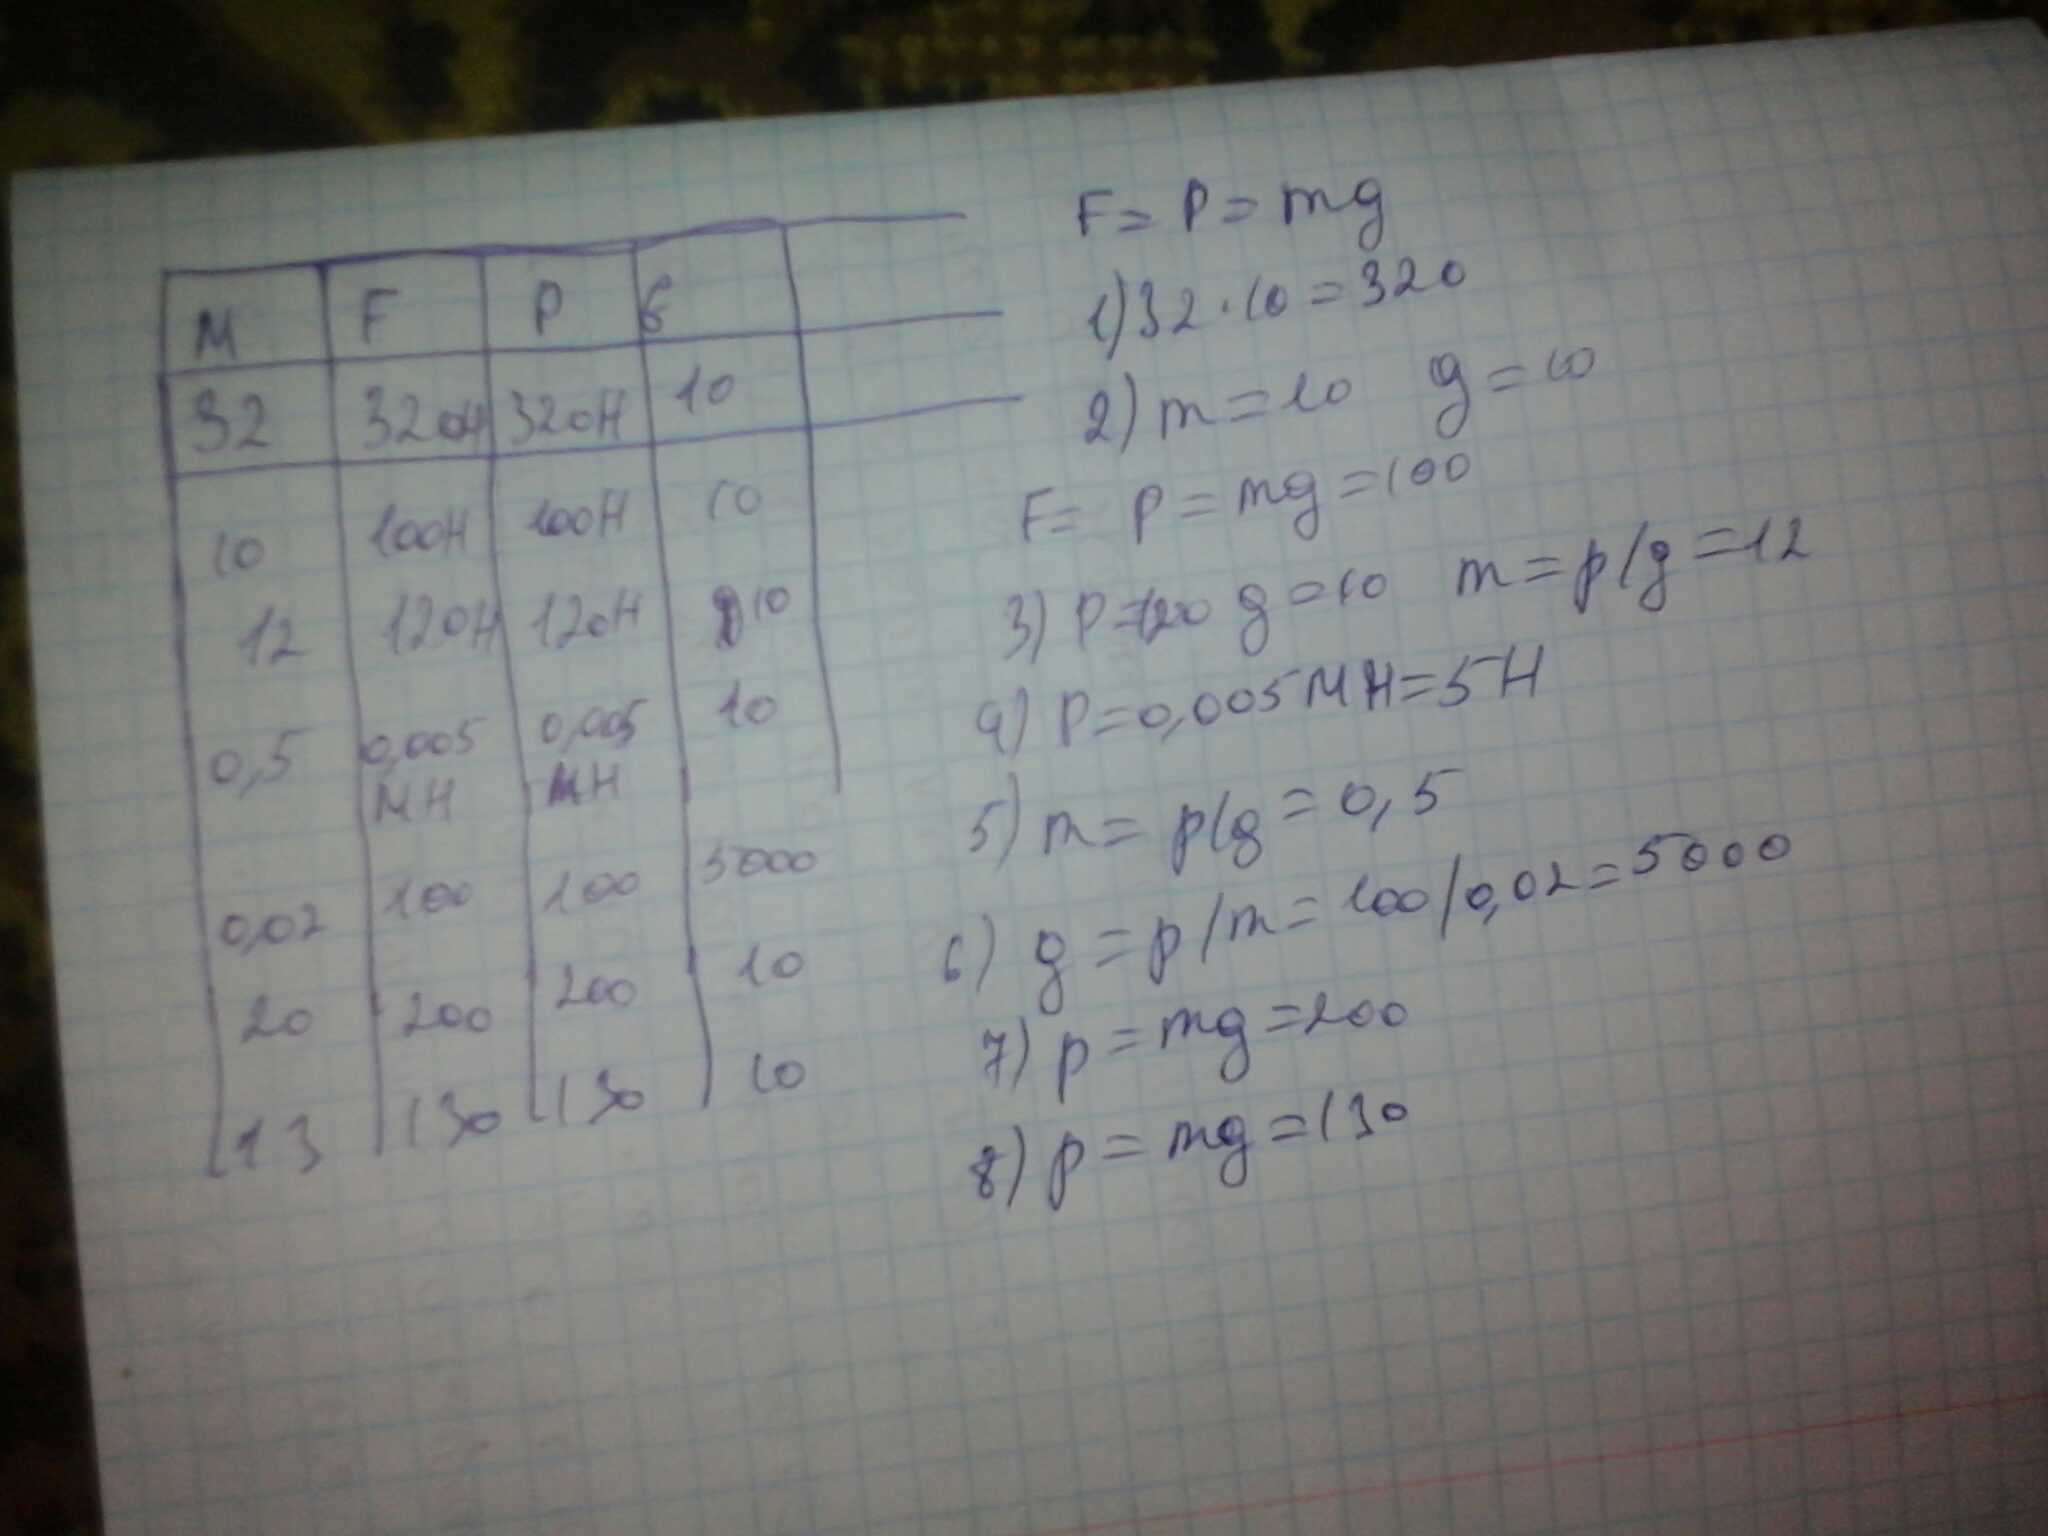 M F P G
32 320H 320H 10
10 100H 100H 10
12 120H 120H 10
0,5 0,005 MH 0,005 MH 10
0,02 100 100 5000
20 200 200 10
13 130 130 10
F = P = mg
1) 32 · 10 = 320
2) m = 10 g = 10
F = P = mg = 100
3) P = 120 g = 10 m = p/g = 12
4) P = 0,005 MH = 5H
5) m = p/g = 0,5
6) g = p/m = 100/0,02 = 5000
7) p = mg = 200
8) p = mg = 130